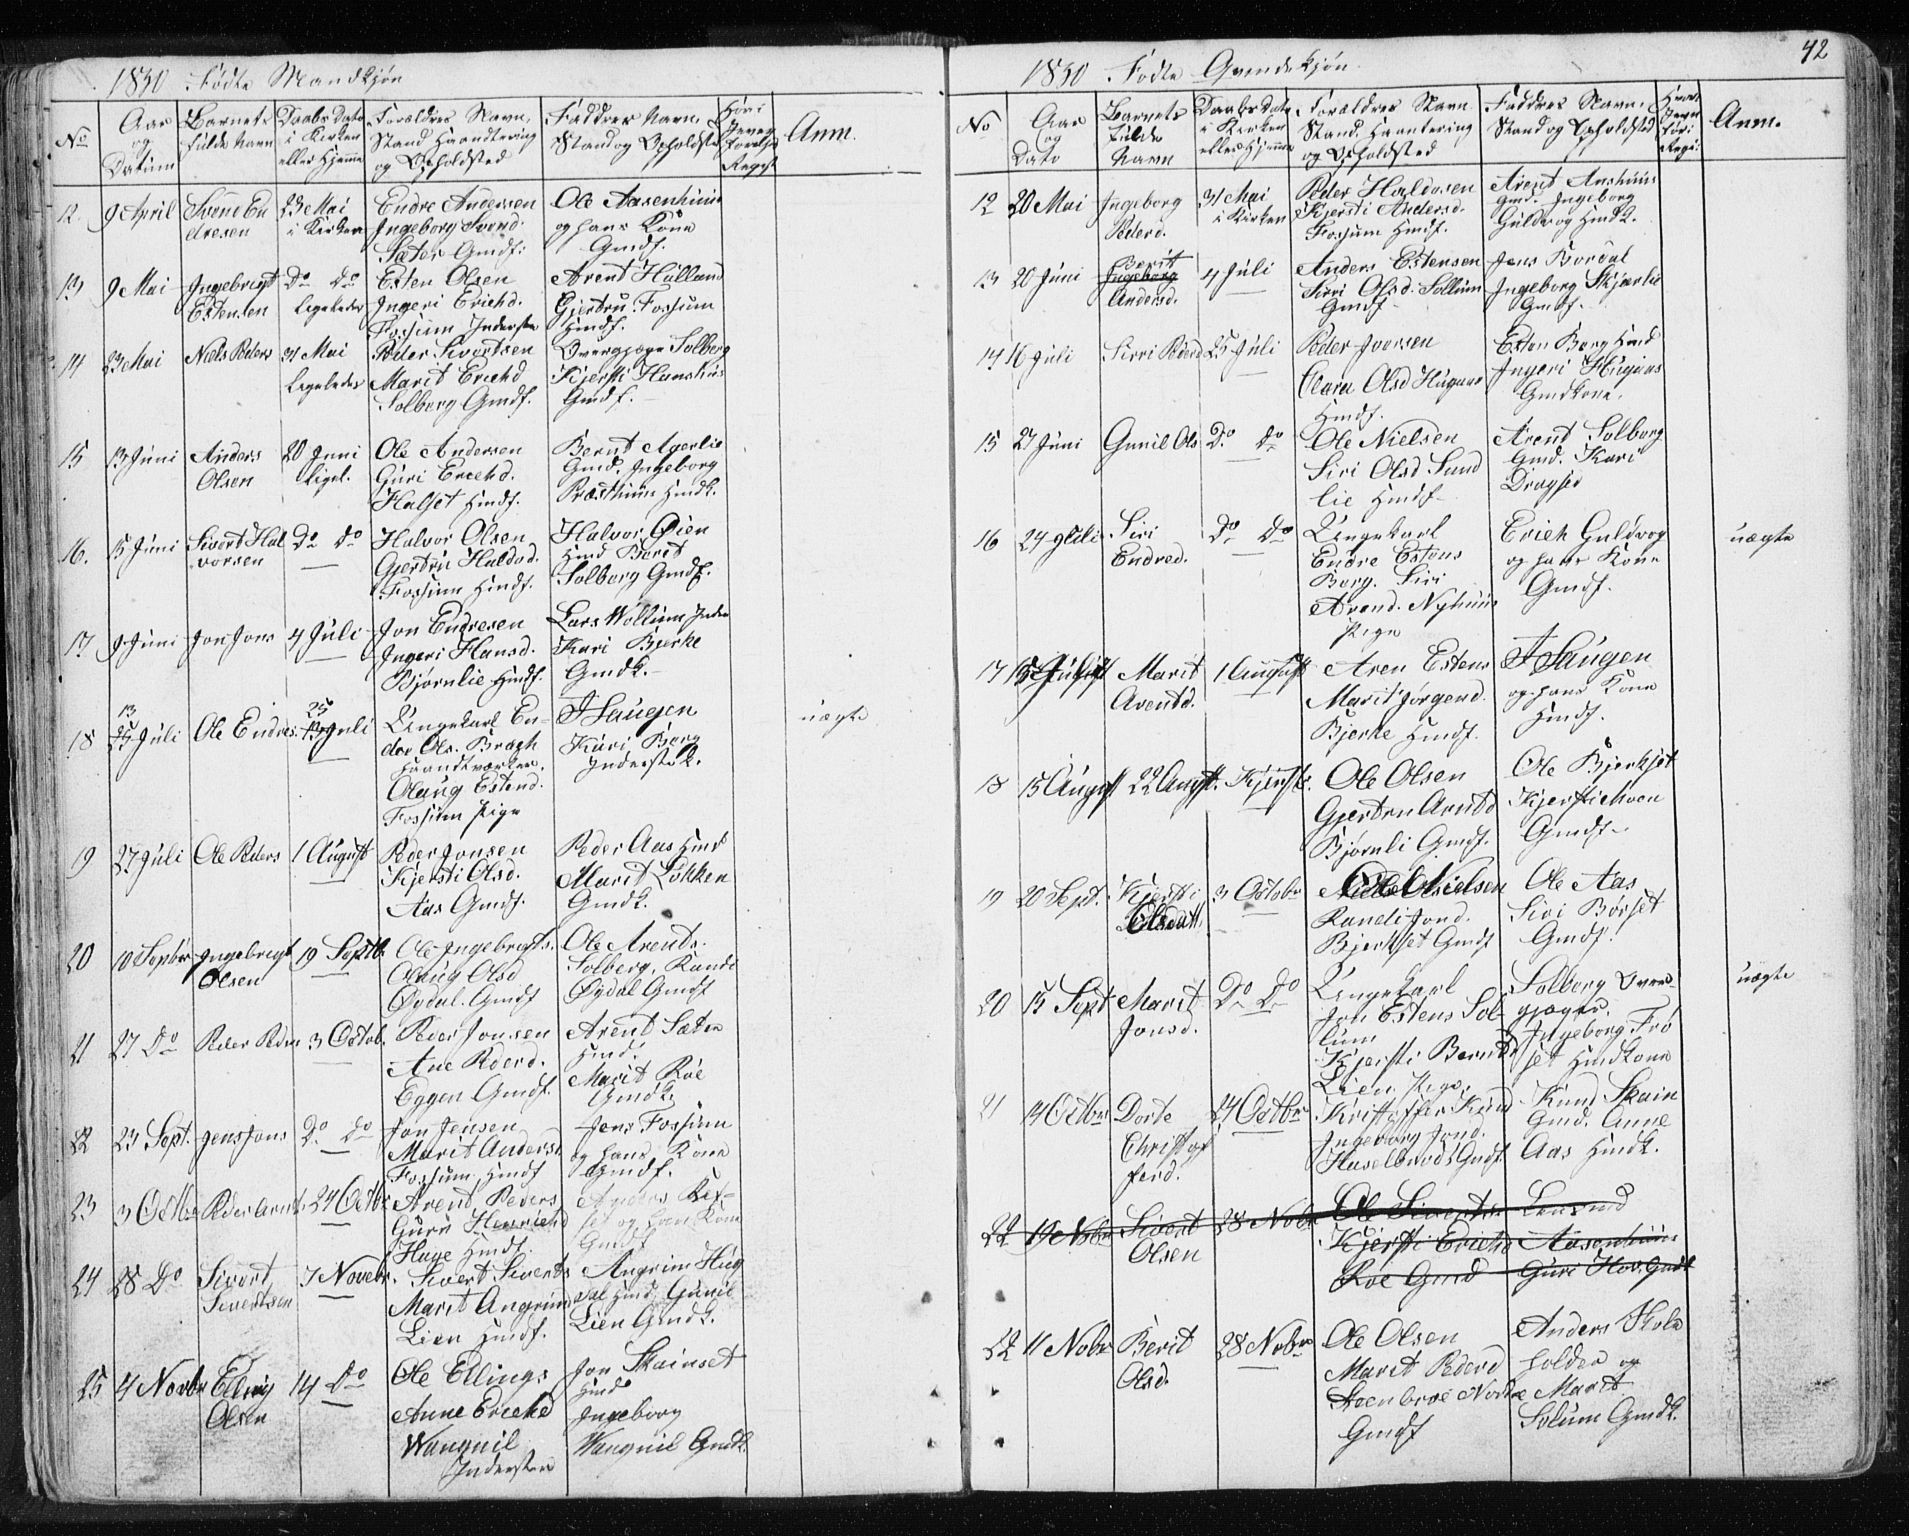 42
1830 Fødte Mandkjøn
No
Aar og Datum
Barnets fulde Navn
Daabs Dato i Kirken eller Hjemme
Forældres Navn, Stand Haandtering og Opholdsted
Faddres Navn, Stand og Opholdsted
Anm.
12. 9 April
Svend En
dresen
23 Mai
i Kirken
Endre Andersen
Ingeborg Svend.
Sæter Gmdf.
Ole Aasenhuus
og hans Kone
Gmdf.
13 9 Mai
Ingebrigt
Estensen
Do Do
Ligeledes
Esten Olsen
Ingeri Erichd.
Fossum Inderste
Arent Halland
Gjertru Fossum
Hmdf.
14 23 Mai
Niels Peders
31 Mai
Ligeledes
Peder Sivertsen
Marit Erichd
Solberg Gmdf.
Overgjæger Solberg
Kjersti Hanshus
Gmdf.
15 13 Juni
Anders
Olsen
20 Juni
Ligel.
Ole Andersen
Guri Erichd.
Halset Hmdf.
Bernt Agerlie
Gmd. Ingeborg
Præsthuus Hmdk.
16. 15 Juni
Sivert Hal
vorsen
Do Do
Halvor Olsen
Gjertru Haldod.
Fossum Hmdf.
Halvor Øien
Hmd Berit
Solberg Gmdf.
17 9 Juni
Jon Jons
4 Juli
Jon Endresen
Ingeri Hansd.
Bjørnlie Hmdf.
Lars Wollum Inder
Kari Bjerke
Gmdk.
18 13
25 Juli
Ole Endres.
25
13 Juli
Ungekarl En-
dre Ols. Bragh
Haandtværker.
Olaug Estend.
Fossum Pige
J Haugen
Kari Berg
Inderstek.
uægte
19 27 Juli
Ole Peders
1 August
Peder Jonsen
Kjersti Olsd.
Aas Gmdf.
Peder Aas Hmd
Marit Løkken
Gmdk.
20 10 Septbr
Ingebrigt
Olsen
19 Septb.
Ole Ingebrigts.
Olaug Olsd
Øydal. Gmdf
Ole Arents.
Solberg, Randi
Øydal Gmdf
21 27 Do
Peder Peders
3 Octob.
Peder Jonsen
Ane Pederd.
Eggen Gmdf.
Arent Sæter
Hmd.
Marit Roe
Gmdk.
22 23 Sept.
Jens Jons
Do Do
Jon Jensen
Marit Andersd.
Fossum, Hmdf
Jens Fossum
og hans Kone
Gmdf.
23 3 Octbr
Peder Arnts
24 Octbr
Arent Peders
Guru Henrichd
Hage Hmdf.
Anders Ref-
set og hans Kone
Gmdf
24 28 Do
Sivert
Sivertsen
7 Novebr.
Sivert Siverts
Marit Angrimd
Lien Hmdf.
Angrim Hug
dal Hmd, Gunil
Lien Gmdk.
25 4 Novbr
Elling
Olsen
14 Do
Ole Ellings
Anne Erichd
Wangnil
Inderster
Jon Skainset
Hmd
Ingeborg
Wangnil Gmdk.
1830 Fødte Qvindekjøn
No
Aar og Dato
Barnets fulde Navn
Daabs Dato i Kirken eller Hjemme
Forældres Navn Stand, Haantering og Opholdsted
Faddres Navn, Stand og Opholdsted
Anm.
12 20 Mai
Ingeborg
Pederd.
31 Mai
i Kirken
Peder Haldosen
Kjersti Andersd.
Fossum Hmdf.
Arent Aashuus
Gmd. Ingeborg
Guldvog Hmdk.
13 20 Juni
Berit
Ingeborg
Andersd.
4 Juli
Anders Estensen
Sirri Olsd. Sollum
Gmdf
Jens Bordal
Ingeborg Skjærlie
Gmdf.
14 16 Juli
Sirri Pederd
25 Juli
Peder Joersen
Clara Olsd Hugaas
Hmdf.
Esten Berg Hmd
Ingeri Hugaas
Gmdkone.
15 27 Juni
Gunil Ols
Do Do
Ole Nielsen
Siri Olsd. Sund
lie Hmdf
Arent Solberg
Gmd. Kari
Dragset
16 24 Juli
Siri
Endred.
Do Do
Ungekarl
Endre Estens
Berg. Siri
Arend. Nyhuus
Pige
Erich Guldvog
og hans Kone
Gmdf.
uægte
17
Marit
Arentd.
1 August
Aren Estens
Marit Jørgend.
Bjerke Hmdf.
J Haugen
og hans Kone
Hmdf.
18 15 August
22 Augst.
Kjersti.
Ole Olsen
Gjertru Arntd
Bjørnli Gmdf.
Ole Bjerkset
Kjersti Hoen
Gmdf.
19 20 Sept.
Kjersti
Olsdatt
3 Octobr
Randi Jond.
Bjerkset Gmdf
Ole Aas
Siri Børset
Gmdf.
20 15 Sept
Marit
Jonsd.
Do Do
Ungekarl
Jon Estens Sol-
lum
Kjersti Berntd
Lien. Pige.
Solberg Over-
gjæger.
Ingeborg Frø
set Hmdkone
uægte
21 14 Octbr
Dorte
Christof
ferd.
24 Octbr
Kristoffer Knud
Ingeborg Jond.
Haselbrods Gmdf.
Knud Skain
Gmd. Anne
Aas Hmdk.
22 19 Nobr
Sivert
Olsen
28 Nobr
Ole Siverts
Kjersti Erichd
Roe Gmd
Lensmd
Aasenhuus
Guri Hov. Gmdk
22 11 Nobr
Berit
Olsd.
28 Nobr
Ole Olsen
Marit Pederd
Steenbroe Nordre
Gmdf
Anders Skole
holder og
Marit
Solum Gmdk.